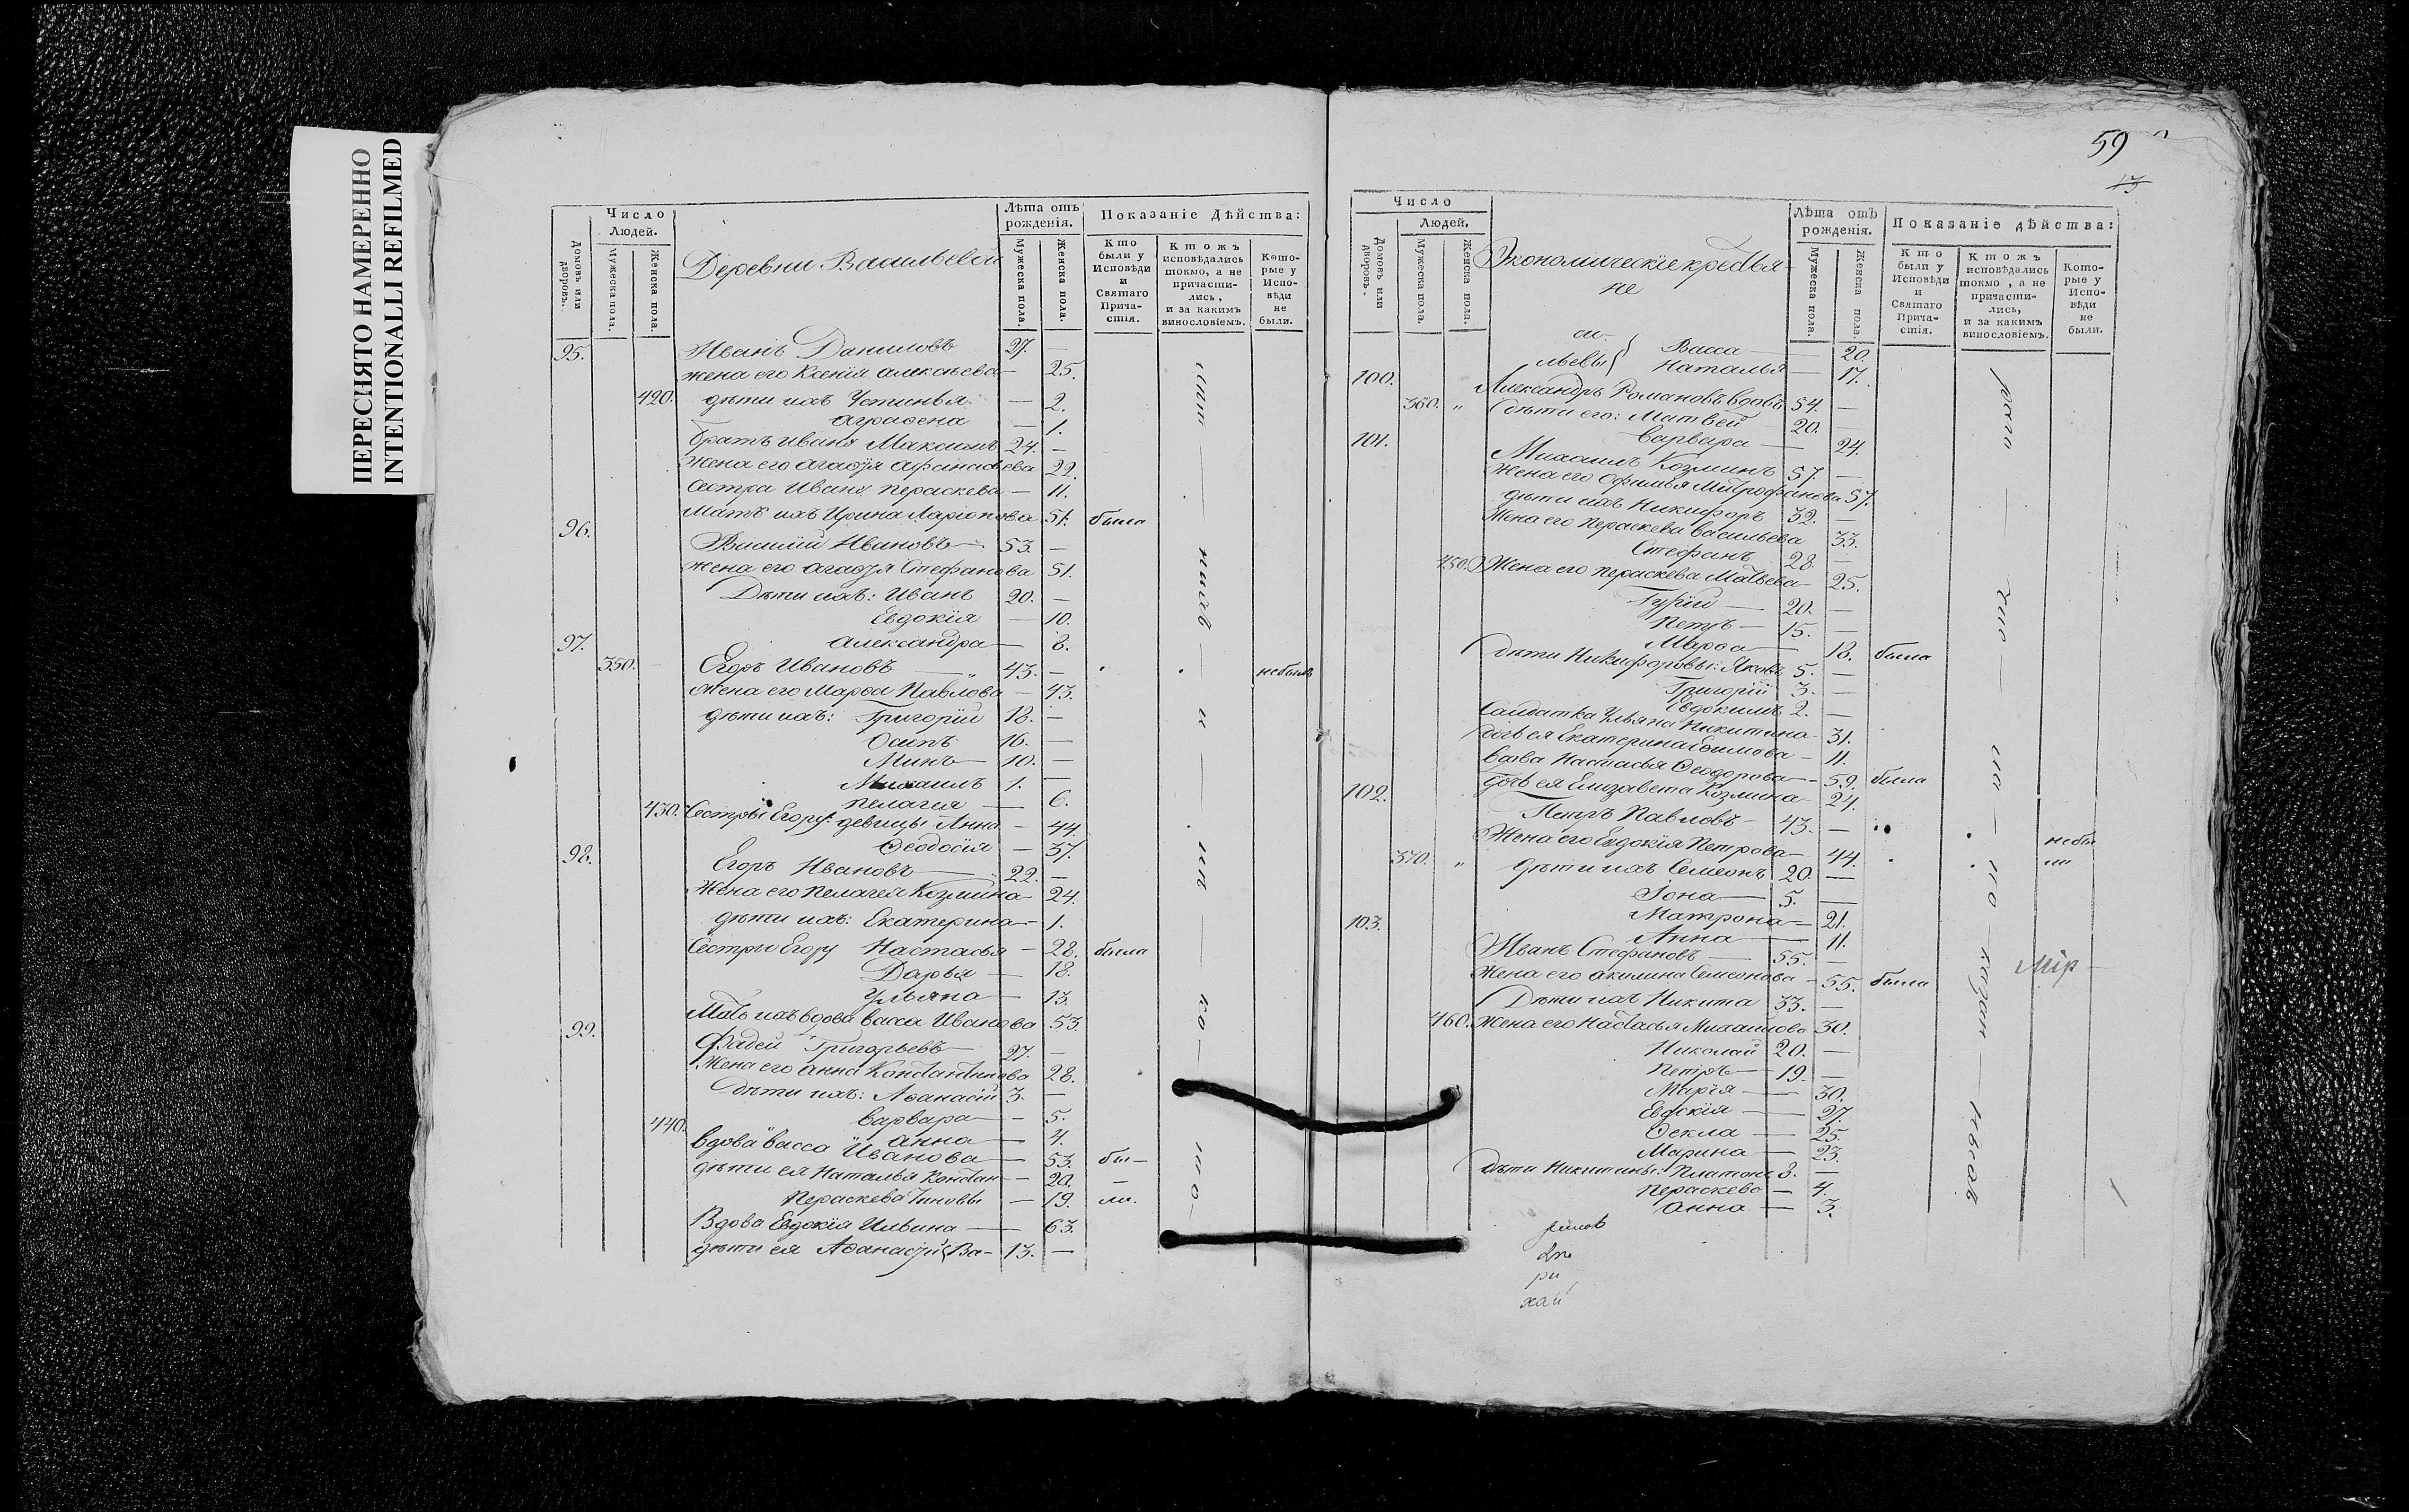 ПЕРЕСНЯТО НАМЕРЕННО
INTENTIONALLI REFILMED
Число
Людей.
Домовъ или дворовъ.
Мужеска пола.
Женска пола.
Деревни Васильевой
Лѣта отъ рожденія.
Мужеска пола.
Женска пола.
Показаніе Дѣйства:
Кто были у Исповѣди и Святаго Прича-стія.
Ктожъ исповѣдались токмо, а не причасти-лись, и за какимъ винословіемъ.
Кото-рые у Испо-вѣди не были.
95. Иванъ Даниловъ 27. —
жена его Ксенія алексѣева — 25.
420. дѣти ихъ Устинья — 2.
аграѳена — 1.
братъ ивана Максимъ 24. —
жена его агаѳія афанасьева 22.
Сестра Ивану пераскева — 11.
мать ихъ Ирина Ларіонова 51. была
96. Василій Ивановъ — 53. —
жена его агаѳія Стефанова 51.
Дѣти ихъ: Иванъ 20. —
Евдокія — 10.
александра — 8.
97. 350. — Егоръ Ивановъ — 43. — небылъ
жена его Марѳа Павлова — 43.
дѣти ихъ: Григорій 18. —
Осипъ 16. —
Минъ — 10. —
Михаилъ 1. —
пелагея — 6.
430. Сестры Егору: девицы Анна — 44.
Ѳеодосія — 37.
98. Егоръ Ивановъ — 22. —
Жена его пелагея Козмина — 24.
дѣти ихъ: Екатерина — 1.
Сестры Егору Настасья — 28. была
Дарья — 18.
Ульяна — 13.
Мать ихъ вдова васса Иванова 53.
99. Фадей Григорьевъ — 27. —
Жена его анна Константинова 28.
дѣти ихъ: Аѳанасій 3. —
440. варвара — 5.
анна — 4.
вдова васса Иванова — 53. бы-
дѣти ея Наталья Констан- — 20. —
Пераскева тиновы — 19. ли.
Вдова Евдокія Ильина — 63.
дѣти ея Аѳанасій Ва- 13. —
59
13
Число
Людей.
Домовъ или дворовъ.
Мужеска пола.
Женска пола.
Экономическіе кресья-
не
Лѣта отъ рожденія.
Мужеска пола.
Женска пола.
Показаніе дѣйства:
Кто были у Исповѣди и Святаго Прича-стія.
Ктожъ исповѣдались токмо, а не причасти-лись, и за какимъ винословіемъ.
Кото-рые у Испо-вѣди не были.
си- Васса — 20.
льевы Наталья — 17.
100. Александръ Романовъ вдовъ 54. —
360. „ дѣти его: Матвей 20. —
варвара — 24.
101. Михаилъ Козминъ 57. —
Жена его Офимья Митрофанова 57.
дѣти ихъ Никифоръ 32. —
Жена его пераскева васильева 33.
Стефанъ 28. —
450. Жена его пераскева Матвева — 25.
Гурій — 20. —
Петръ — 15. —
Марѳа — 18. была
дѣти Никифоровы: Яковъ 5. —
Григорій 3. —
Евдокимъ 2. —
Салдатка Ульяна Никитина — 31.
дочь ея Екатерина Ефимова — 11.
вдова Настасья Ѳеодорова — 59. была
дочь ея Елизавета Козмина — 24.
102. Петръ Павловъ — 43. —
Жена его Евдокія Петрова — 44. небы
370. „ Дѣти ихъ Семеонъ 20. — ли
Іона — 5. —
Матрона — 21.
Анна — 11.
103. Иванъ Стефановъ — 55. —
Жена его акилина Семеонова — 55. была
Дѣти ихъ Никита 33. —
460. жена его Настасья Михаилова 30.
Николай 20. —
Петръ — 19. —
Марія — 30.
Евдокія — 27.
Ѳекла — 25.
Марина — 23.
дѣти Никитины: Платонъ 8. —
пераскева — 4.
анна — 3.